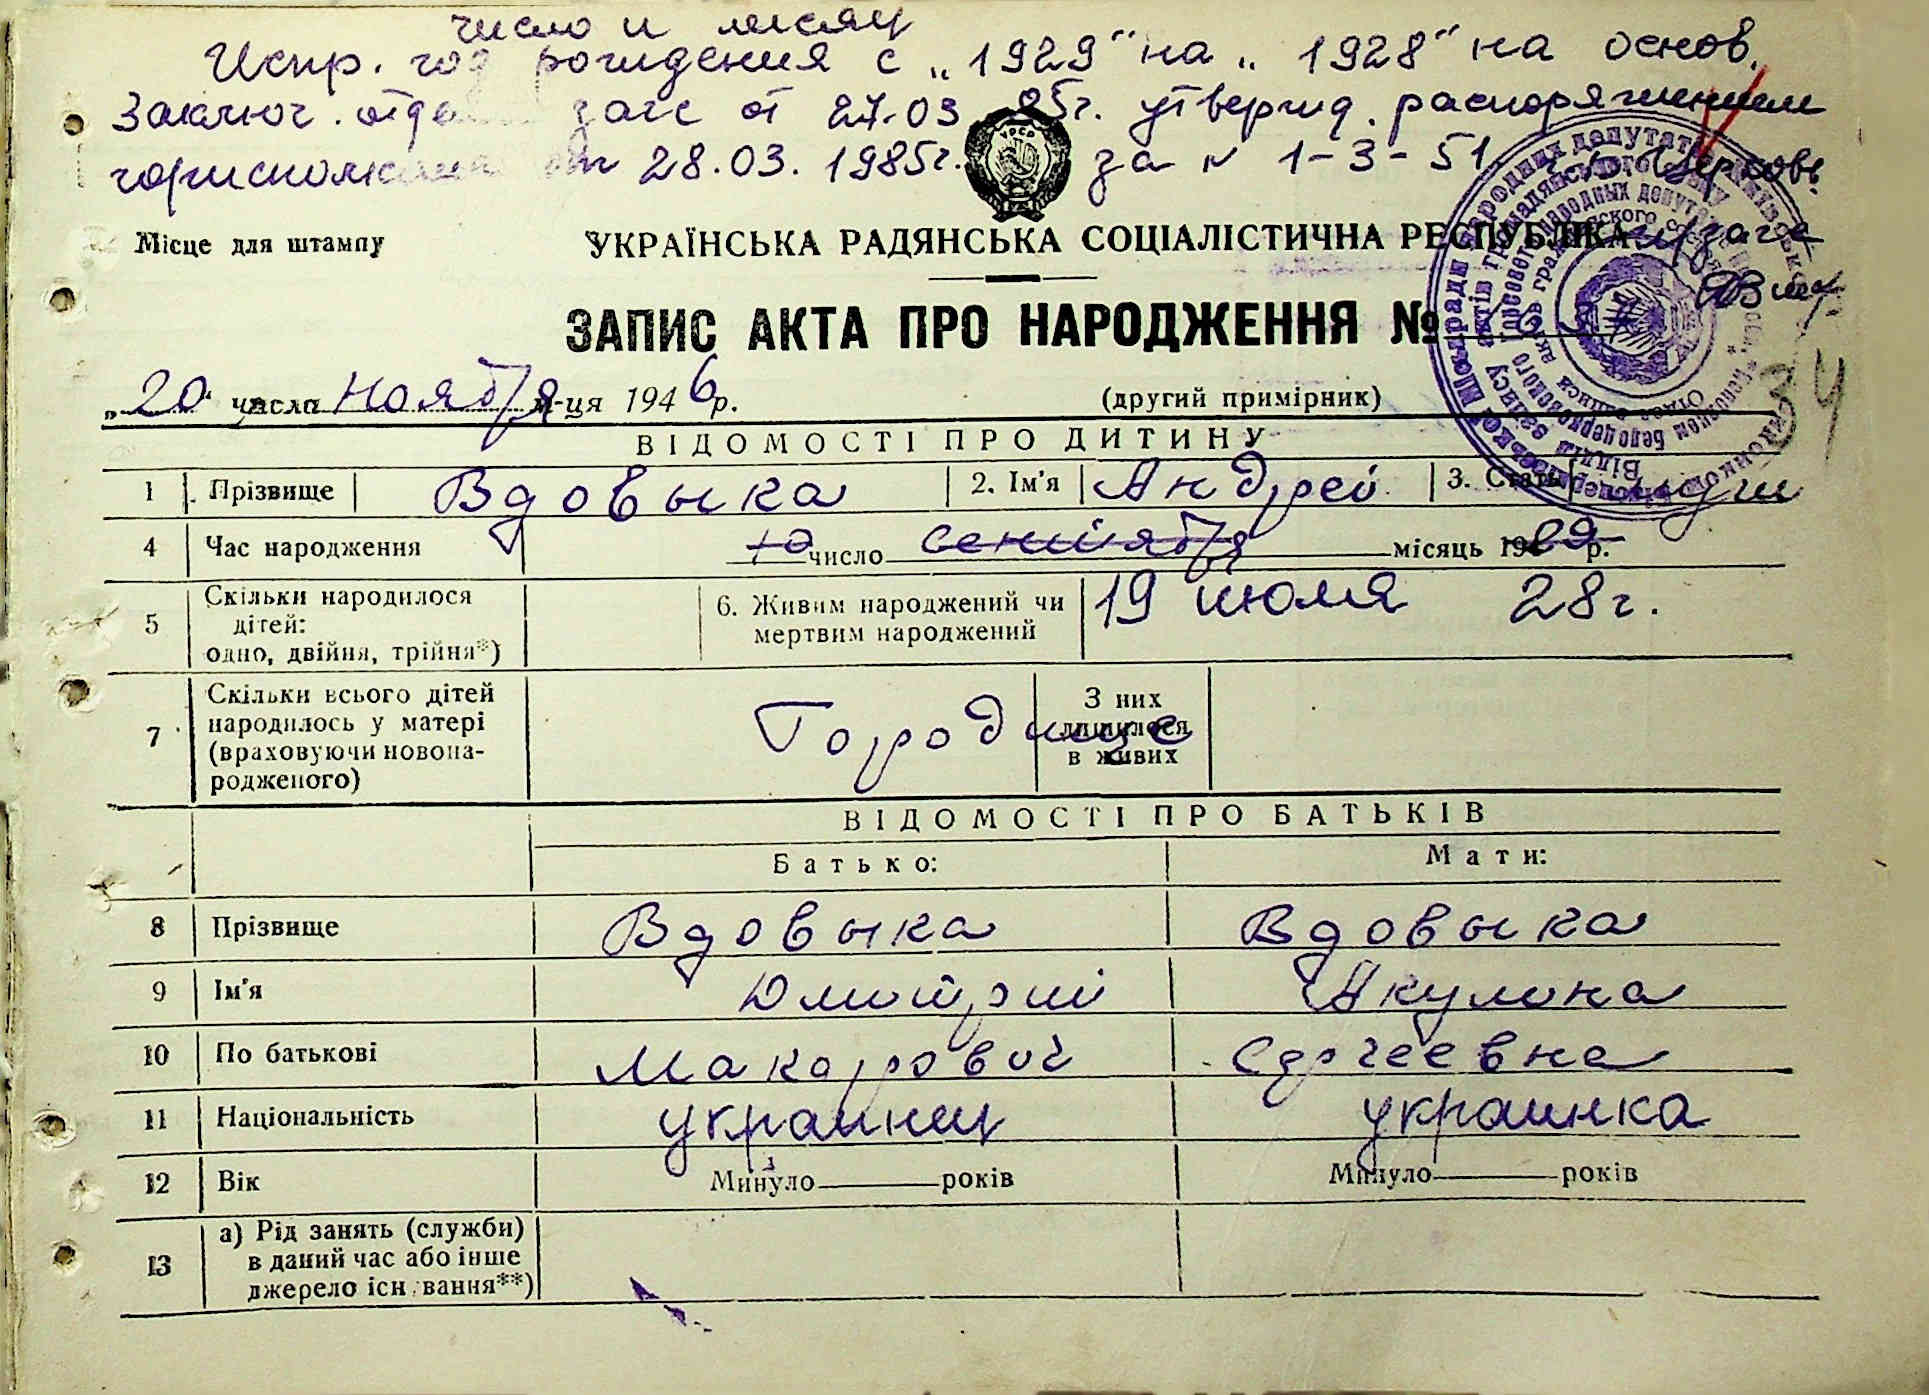 число и месяц
Испр. год рождения с „1929“ на „1928“ на основ.
заключ. отдела загс от 27.03.85г. утвержд. распоряжением
горисполкома от 28.03.1985г. за № 1-3-51
УРСР
Місце для штампу
УКРАЇНСЬКА РАДЯНСЬКА СОЦІАЛІСТИЧНА РЕСПУБЛІКА
ЗАПИС АКТА ПРО НАРОДЖЕННЯ №
34
„20“ числа ноября м-ця 1946 р.
(другий примірник)
ВІДОМОСТІ ПРО ДИТИНУ
1 Прізвище Вдовыка 2. Ім'я Андрей 3. Стать
4 Час народження 10 число сентября місяць 1929 р.
19 июля 28г.
5 Скільки народилося
дітей:
одно, двійня, трійня*)
6. Живим народжений чи
мертвим народжений
7 Скільки всього дітей
народилось у матері
(враховуючи новона-
родженого)
Городище
З них
лишилося
в живих
ВІДОМОСТІ ПРО БАТЬКІВ
Батько: Мати:
8 Прізвище Вдовыка Вдовыка
9 Ім'я Дмитрий Акулина
10 По батькові Макарович Сергеевна
11 Національність украинец украинка
12 Вік Минуло років Минуло років
13 а) Рід занять (служби)
в даний час або інше
джерело існування**)